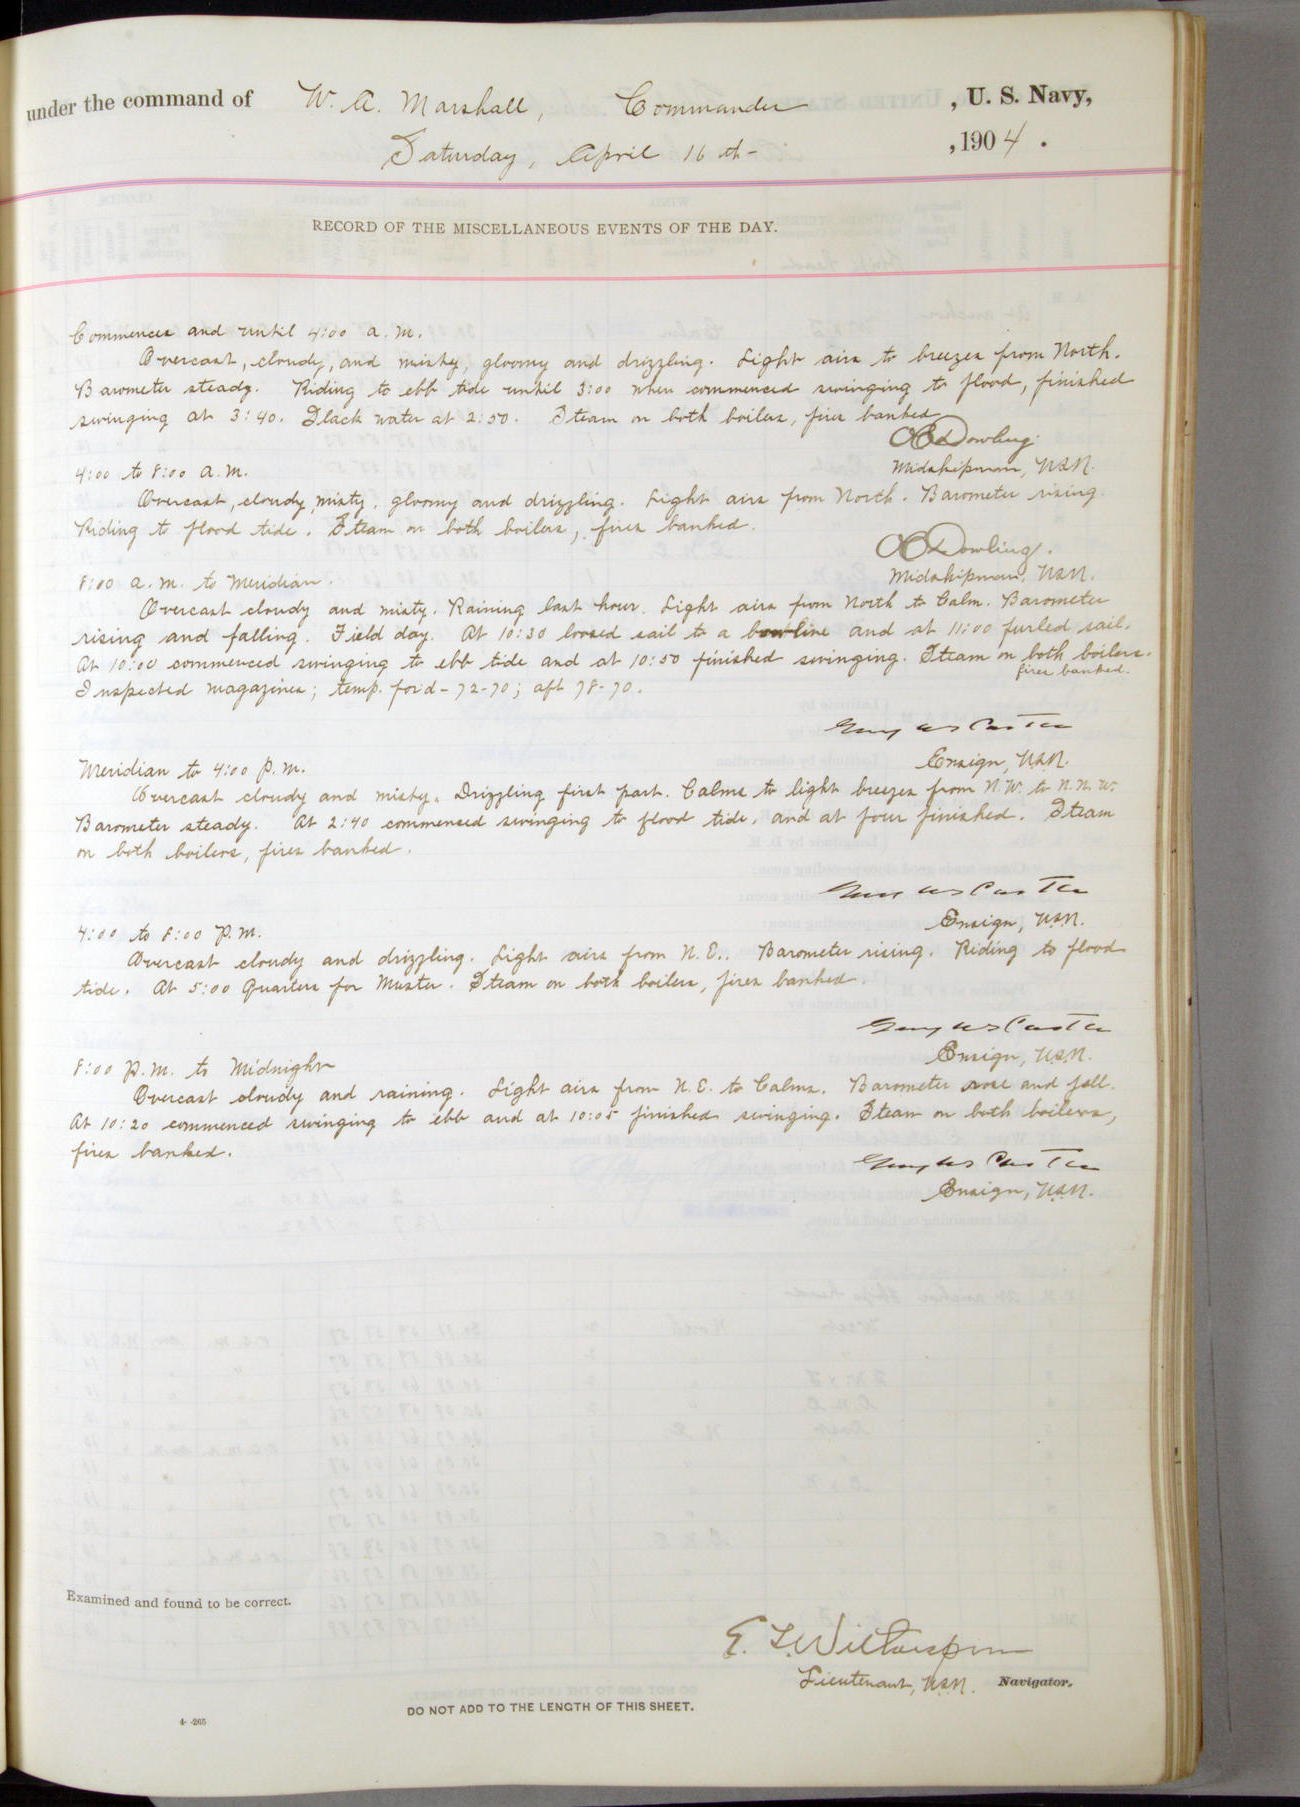 under the command of W. A. Marshall, Commander, U. S. Navy,
Saturday, April 16th - , 1904.
RECORD OF THE MISCELLANEOUS EVENTS OF THE DAY.
Commences and until 4:00 a.m.
Overcast, cloudy, and misty, gloomy and drizzling. Light airs to breezes from North.
Barometer steady. Riding to ebb tide until 3:00 when commenced swinging to flood, finished
swinging at 3:40. Slack water at 2:50. Steam on both boilers, fires banked.
Dowling.
Midshipman, USN.
4:00 to 8:00 a.m.
Overcast, cloudy, misty, gloomy and drizzling. Light airs from North. Barometer rising.
Riding to flood tide. Steam on both boilers, fires banked.
Dowling.
Midshipman, USN.
8:00 a.m. to Meridian.
Overcast cloudy and misty. Raining last hour. Light airs from North to Calm. Barometer
rising and falling. Field day. At 10:30 loosed sail to a bowline and at 11:00 furled sail.
At 10:00 commenced swinging to ebb tide and at 10:50 finished swinging. Steam on both boilers.
fires banked.
Inspected magazines; temp. for'd - 72-70; aft 78-70.
Ensign, USN.
Meridian to 4:00 P.M.
Overcast cloudy and misty. Drizzling first part. Calms to light breezes from N.W. to N.N.W.
Barometer steady. At 2:40 commenced swinging to flood tide, and at four finished. Steam
on both boilers, fires banked.
Ensign, USN.
4:00 to 8:00 P.M.
Overcast cloudy and drizzling. Light airs from N.E.. Barometer rising. Riding to flood
tide. At 5:00 Quarters for Muster. Steam on both boilers, fires banked.
Ensign, USN.
8:00 P.M. to Midnight
Overcast cloudy and raining. Light airs from N.E. to Calms. Barometer rose and fell.
At 10:20 commenced swinging to ebb and at 10:05 finished swinging. Steam on both boilers,
fires banked.
Ensign, USN.
Examined and found to be correct.
E. L. Witherspoon
Lieutenant, USN. Navigator.
DO NOT ADD TO THE LENGTH OF THIS SHEET.
4--265